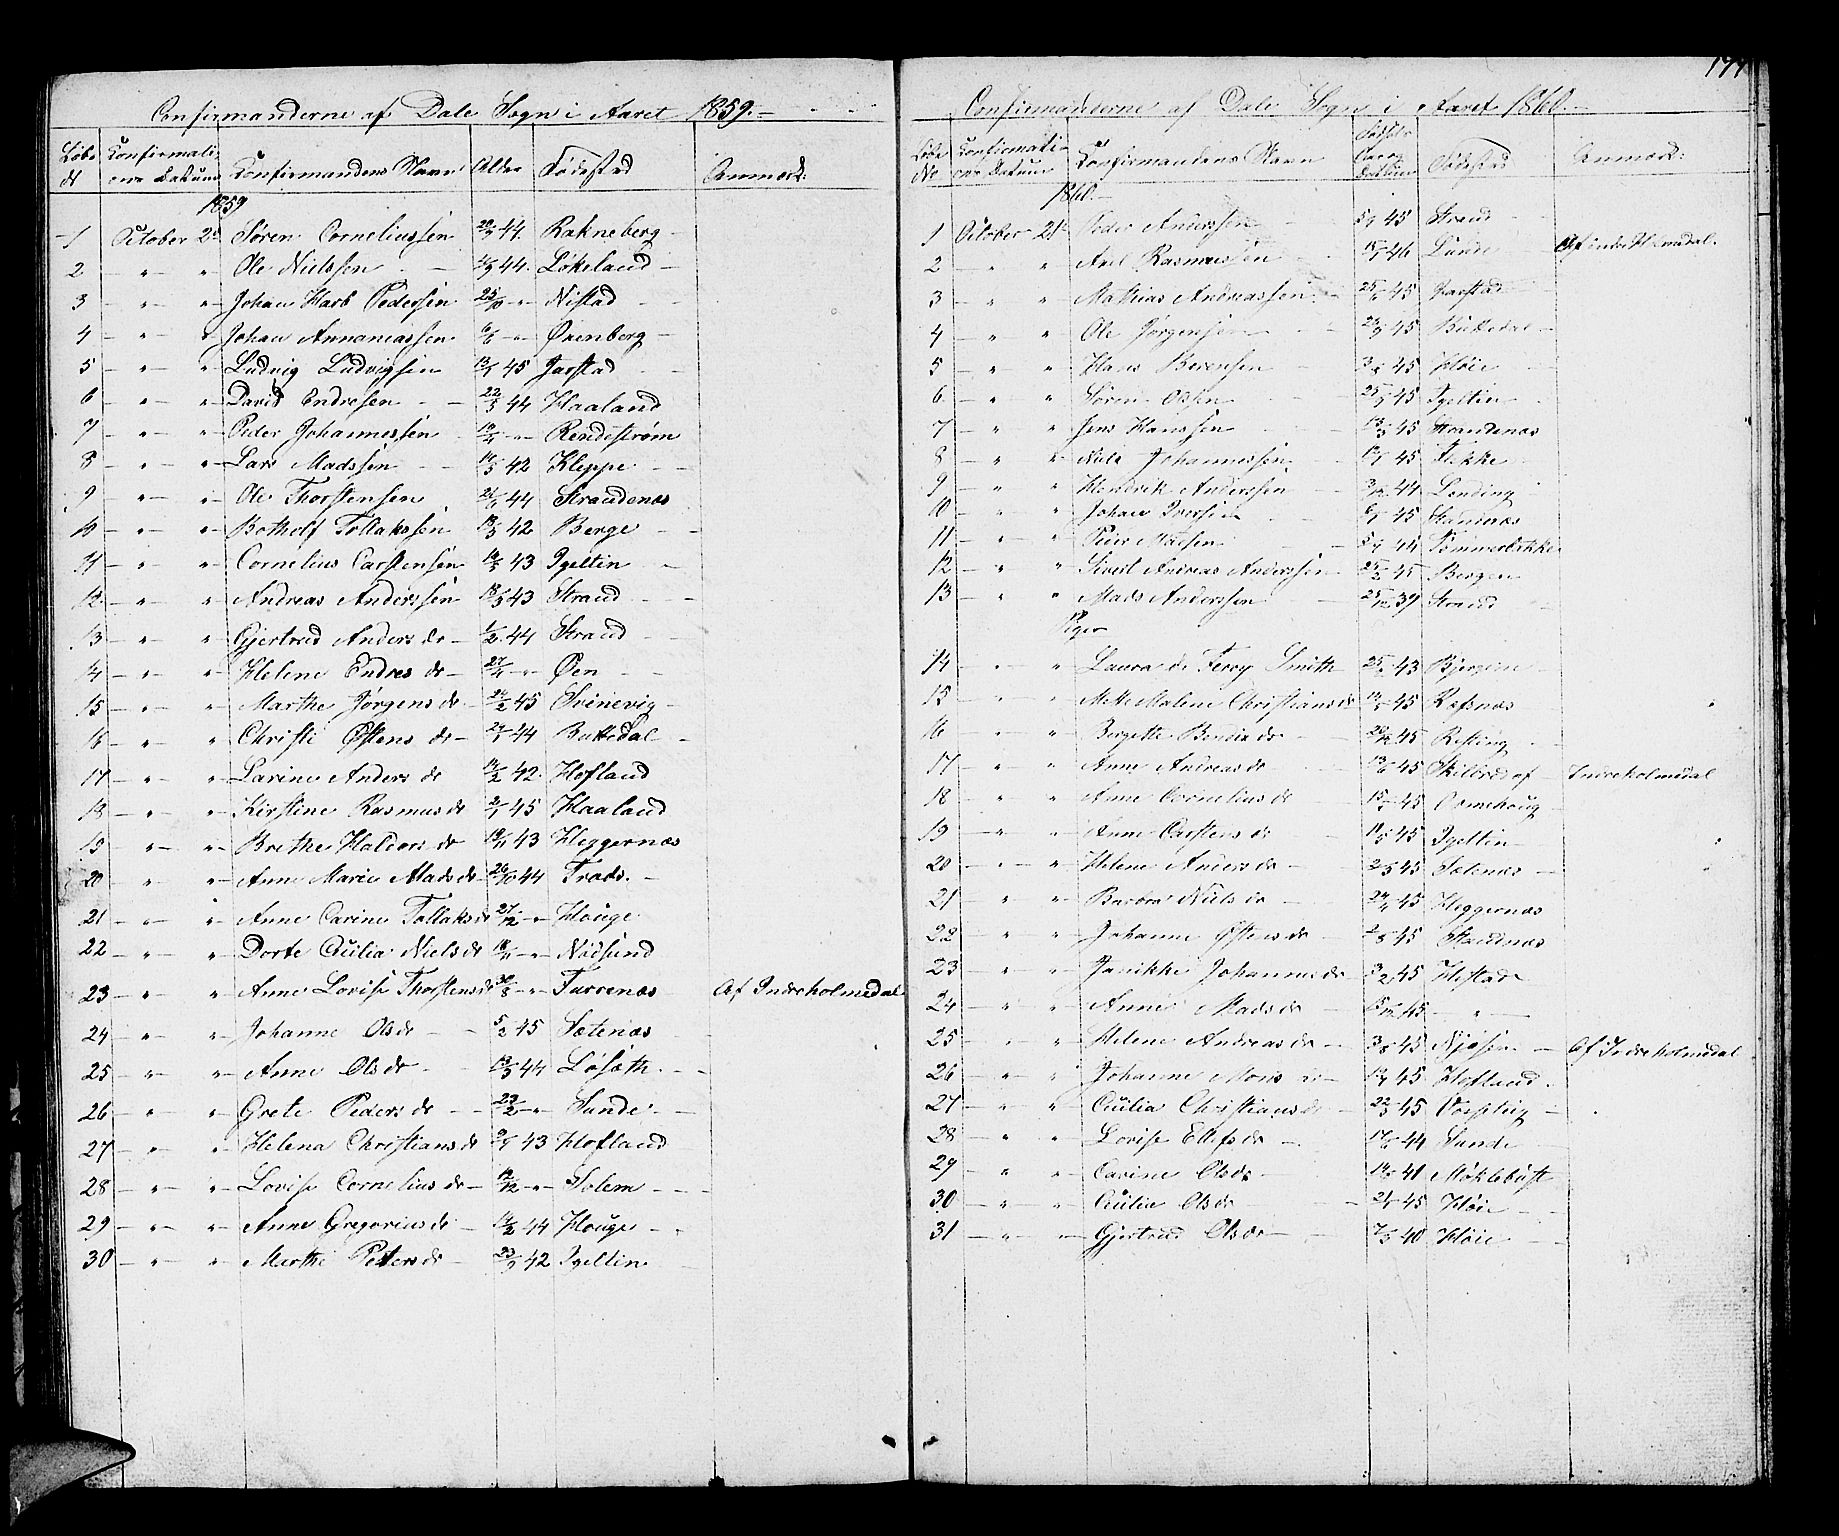 Confirmanderne af Dale Sogn i Aaret 1859.
Løbe № Confirmations Datum Confirmandens Navn Alder Fødested Anmærk:
1859
1 October 2d Søren Corneliussen 44. Rakneberg
2 " " Ole Nielssen 44. Løkeland
3 " " Johan Harb Pedersen " Nistad
4 " " Johan Annaniassen 6/8 " Ørenberg
5 " " Ludvig Ludvigsen 45 Jarstad
6 " " David Endresen 22/3 44 Haaland
7 " " Peder Johannessen " Rendestrøm
8 " " Lars Madssen 42 Kleppe
9 " " Ole Thorstensen 44 Strandenæs
10 " " Botholf Tollakssen 42 Berge
11 " " Cornelius Carstensen 43 Igeltin
12 " " Andreas Anderssen 43 Strand
13 " " Gjertrud Anders dr 1/2 44 Strand
14 " " Helene Endres dr " Øen
15 " " Marthe Jørgens dr 45 Svinevig
16 " " Christi Østens dr 44 Buttedal
17 " " Larine Anders dr 42. Hofland
18 " " Kirstine Rasmus dr 45 Haaland
19 " " Brethe Haldors dr 43 Heggernæs
20 " " Anne Marie Mads dr 44 Træds.
21 " " Anne Carine Tollaks dr 27/12 " Houge
22 " " Dorte Cecilia Niels dr " Nødsund
23 " " Anne Lovise Thorstens dr 30/8 " Furrenæs Af Indreholmedal
24 " " Johanne Ols dr 5/2 45 Sætenæs
25 " " Anne Ols dr 44 Løsæth
26 " " Grete Peders dr " Sande
27 " " Helena Christians dr 43 Hofland
28 " " Lovise Cornelius dr " Solem
29 " " Anne Gregorius dr 44 Houge
30 " " Marthe Peters dr 42 Igeltin
177
Confirmanderne af Dale Sogn i Aaret 1860.
Løbe No Confirmations Datum Confirmandens Navn Fødsels Aar og Datum Fødested Anmærk:
1860.
1 October Peder Anderssen 45 Strand
2 " " Axel Rasmussen 46 Sunde Af indre Holmedal.
3 " " Mathias Andreassen 45 Jarstad
4 " " Ole Jørgensen 45 Buttedal
5 " " Hans Berensen 45 Høie
6 " " Søren Olsen 45 Igeltin
7 " " Jens Hanssen 45 Strandenæs
8 " " Nils Johannessen 45 Flekke
9 " " Hendrik Anderssen 44 Lending
10 " " Johan Iversen 45 Standnæs
11 " " Peder Madsen 44 Tømmerbakke
12 " " Sivert Andreas Anderssen 45 Bergen
13 " " Mads Anderssen 39 Strand
Piger
14 " " Laura de Ferry Smith 43 Bjergum
15 " " Mette Malene Christians dr 45 Ræfsnæs
16 " " Bergette Bendix dr 45 Risting
17 " " Anne Andreas dr 45 Skilbred af Indreholmedal
18 " " Anne Cornelius dr 45 Ormehoug
19 " " Anne Carstens dr 45 Igeltin
20 " " Helene Anders dr 45 Sætenæs
21 " " Barbra Niels dr 45 Heggernæs
22 " " Johanne Østens dr 45 Strandnæs
23 " " Janikke Johannes dr 45 Hestad
24 " " Anne Mads dr 45 "
25 " " Helene Andreas dr 45 Njøsen Af Indreholmedal
26 " " Johanne Mons dr 45 Hofland
27 " " Cecilia Christians dr 45
28 " " Lovise Ellefs dr 44 Sande
29 " " Carine Ols dr 41 Møklebust
30 " " Cecilia Ols dr 45 Høie
31 " " Gjertrud Ols dr 40 Høie